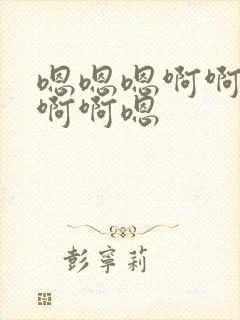 嗯嗯嗯啊啊
啊啊嗯
彭寧莉